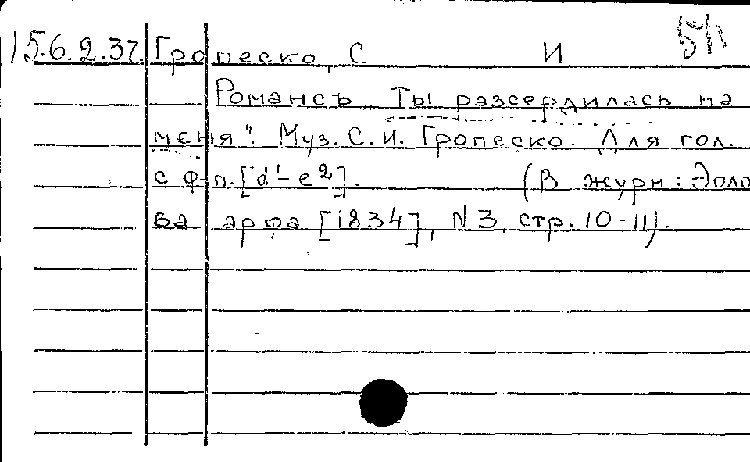 15.6.2.37. Гропеско, С И 511
Романсъ „Ты разсердилась на
меня". Муз. С. И. Гропеско. Для гол.
с ф-п. [d¹-e²]. (В журн: Эоло
ва арфа [1834], N 3, стр. 10-11).